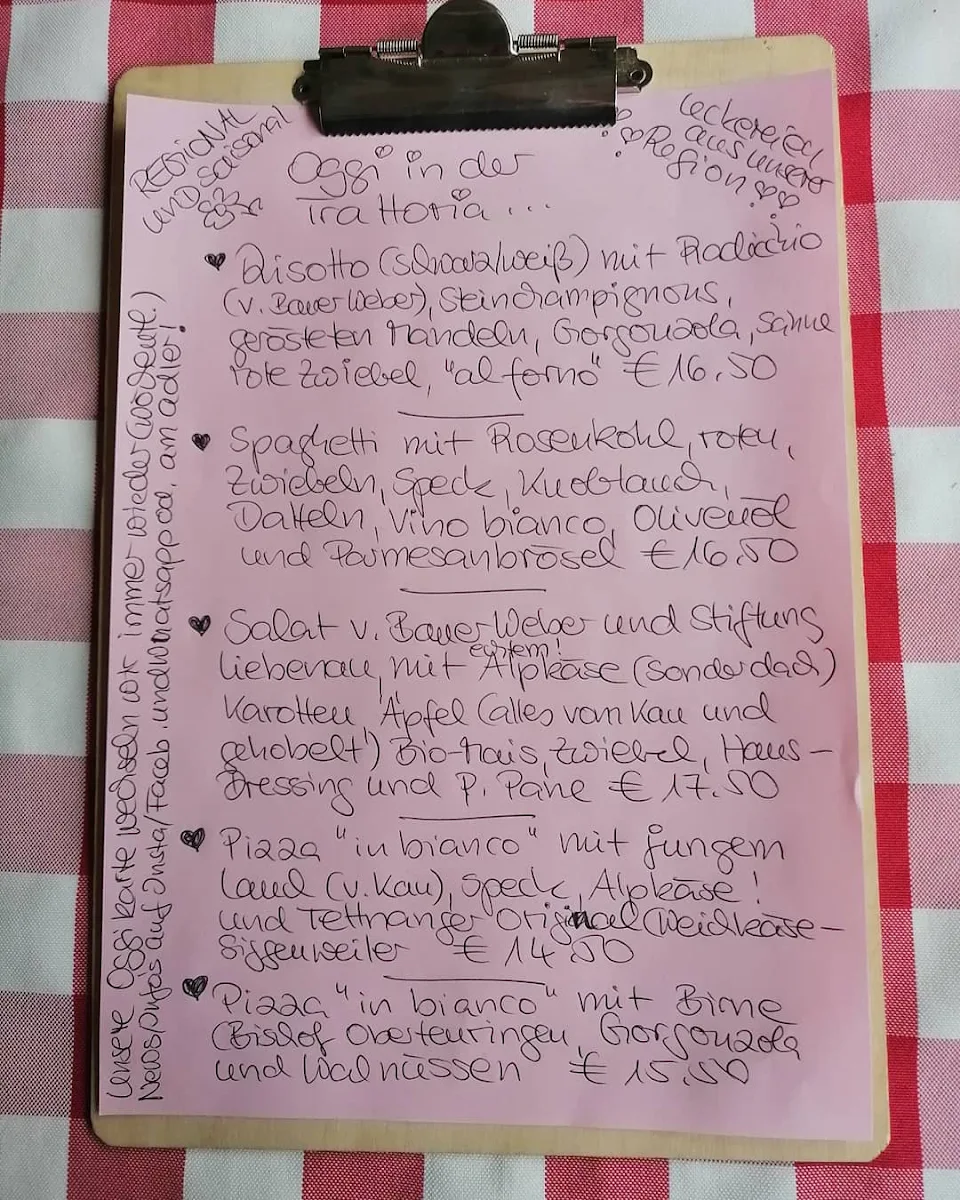 REGIONAL
und saisonal
Leckereien
aus unserer
Region
Oggi in der
Trattoria ...
Risotto (schwarz/weiß) mit Radicchio
(v. Bauer Weber), Steinchampignons,
gerösteten Mandeln, Gorgonzola, Sahne
rote Zwiebel, "al forno" € 16.50
Spaghetti mit Rosenkohl, roten,
Zwiebeln, Speck, Knoblauch,
Datteln, Vino bianco, Olivenöl
und Parmesanbrösel € 16.50
Salat v. Bauer Weber und Stiftung
Liebenau, mit echtem! Alpkäse (Sonderdach)
Karotten, Äpfel (alles vom Kau und
gehobelt!) Bio-Mais, Zwiebel, Haus-
Dressing und P. Pane € 17.50
Pizza "in bianco" mit jungem
Lauch (v. Kau), Speck, Alpkäse!
und Tettnanger Original (Weidkäse-
Siggenweiler € 14.50
Pizza "in bianco" mit Birne
(Bislof Oberteuringen, Gorgonzola
und Walnüssen € 15.50
Unsere Oggi Karte wechseln wir immer wieder (wöchentl.)
News p Infos auf Insta/Faceb. und Whatsapp od. am Adler!